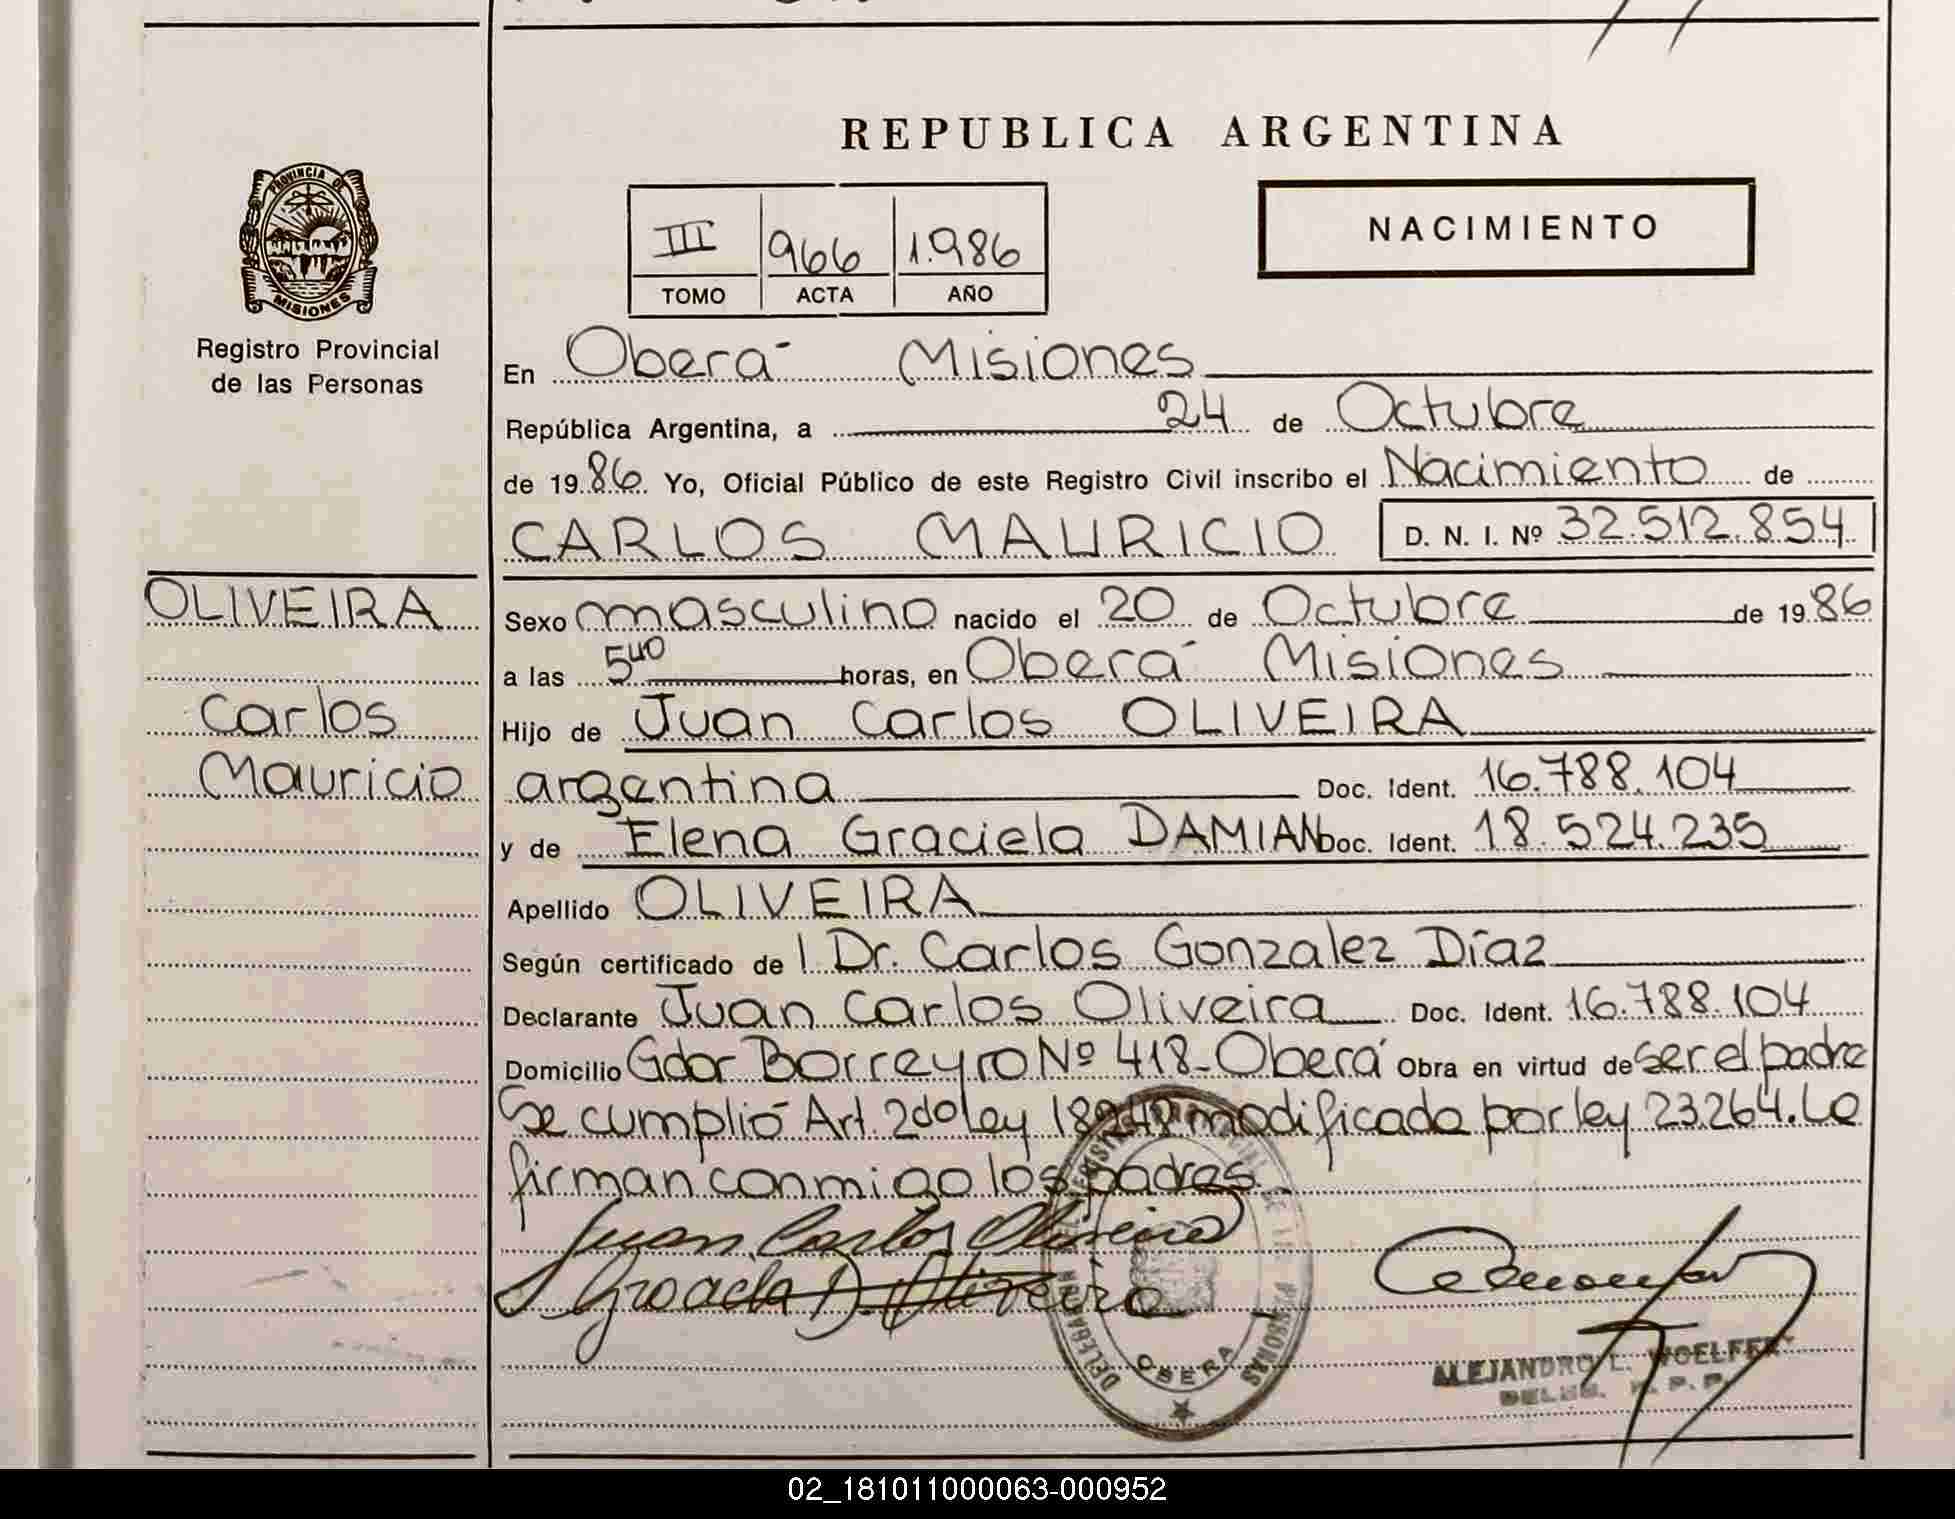 REPUBLICA ARGENTINA
PROVINCIA DE
MISIONES
Registro Provincial
de las Personas
III 966 1.986
TOMO ACTA AÑO
NACIMIENTO
En Oberá Misiones
República Argentina, a 24 de Octubre
de 1986 Yo, Oficial Público de este Registro Civil inscribo el Nacimiento de
CARLOS MAURICIO D. N. I. Nº 32.512.854
OLIVEIRA
Carlos
Mauricio
Sexo masculino nacido el 20 de Octubre de 1986
a las 5 40 horas, en Oberá Misiones
Hijo de Juan Carlos OLIVEIRA
argentina Doc. Ident. 16.788.104
y de Elena Graciela DAMIAN Doc. Ident. 18.524.235
Apellido OLIVEIRA
Según certificado de l Dr. Carlos Gonzalez Díaz
Declarante Juan Carlos Oliveira Doc. Ident. 16.788.104
Domicilio Gdor Borreyro Nº 418-Oberá Obra en virtud de ser el padre
Se cumplió Art. 2do ley 18248 modificada por ley 23.264. Le
firman conmigo los padres.
Juan Carlos Oliveira
Graciela D. Oliveira
OBERA
PERSONAS
ALEJANDRO L. WOELFER
02_181011000063-000952